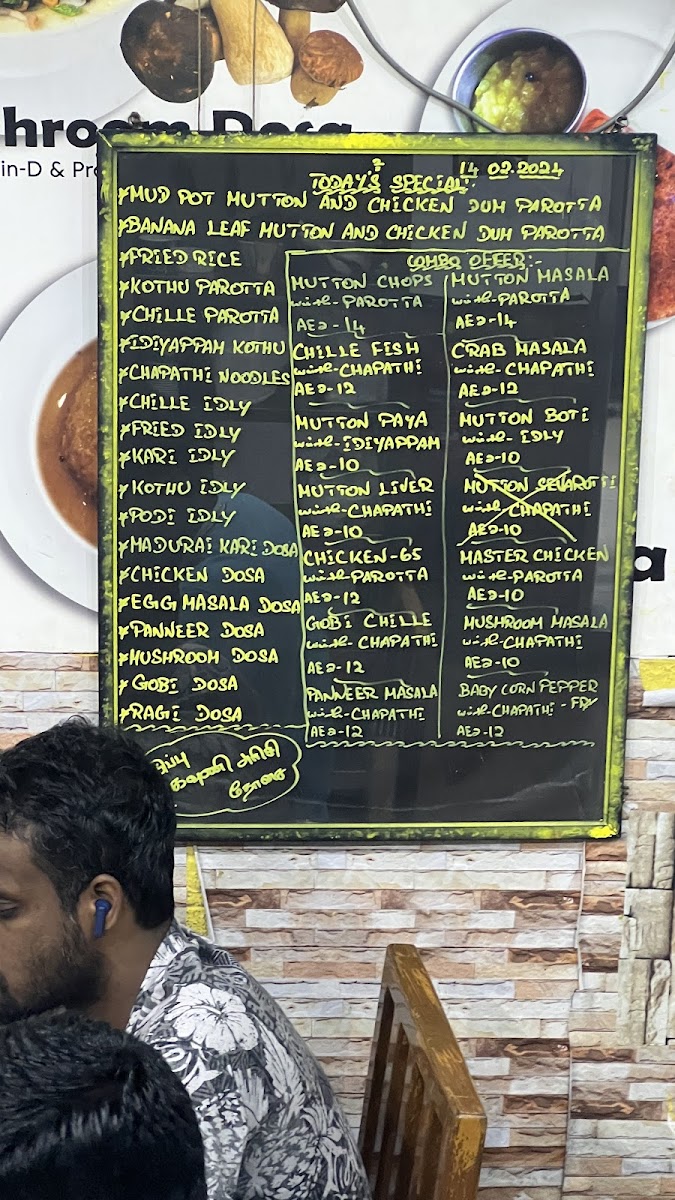 in-D & Pr
TODAY'S SPECIAL:-
14.02.2024
*MUD POT MUTTON AND CHICKEN DUM PAROTTA
*BANANA LEAF MUTTON AND CHICKEN DUM PAROTTA
*FRIED RICE
*KOTHU PAROTTA
*CHILLE PAROTTA
*IDIYAPPAM KOTHU
*CHAPATHI NOODLES
*CHILLE IDLY
*FRIED IDLY
*KARI IDLY
*KOTHU IDLY
*PODI IDLY
*MADURAI KARI DOSA
*CHICKEN DOSA
*EGG MASALA DOSA
*PANNEER DOSA
*MUSHROOM DOSA
*GOBI DOSA
*RAGI DOSA
COMBO OFFER:-
MUTTON CHOPS
with-PAROTTA
AED-14
CHILLE FISH
with-CHAPATHI
AED-12
MUTTON PAYA
with-IDIYAPPAM
AED-10
MUTTON LIVER
with-CHAPATHI
AED-10
CHICKEN-65
with-PAROTTA
AED-12
GOBI CHILLE
with-CHAPATHI
AED-12
PANNEER MASALA
with-CHAPATHI
AED-12
MUTTON MASALA
with-PAROTTA
AED-14
CRAB MASALA
with-CHAPATHI
AED-12
MUTTON BOTI
with-IDLY
AED-10
MUTTON
with-CHAPATHI
AED-10
MASTER CHICKEN
with-PAROTTA
AED-10
MUSHROOM MASALA
with-CHAPATHI
AED-10
BABY CORN PEPPER
with-CHAPATHI-FRY
AED-12
கவுணி அரிசி
தோசை